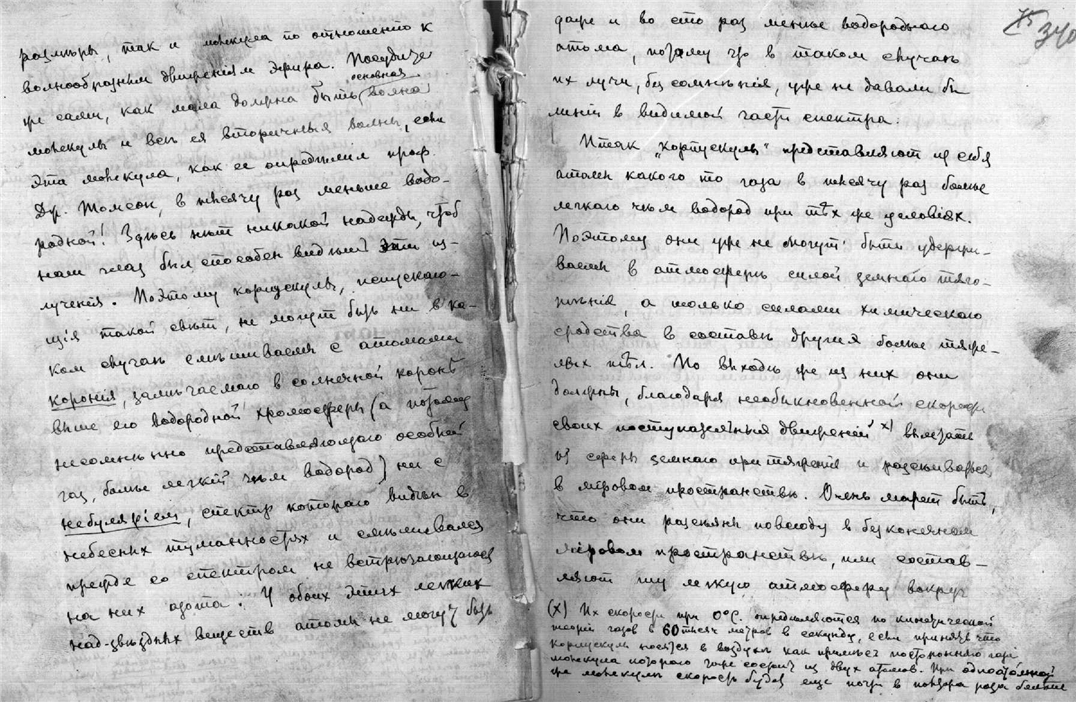 размѣры, так и молекула по отношению к
волнообразным движенiям эфира. Посудите
же сами, как мала должна быть основная волна
молекулы и все ея вторичныя волны, если
эта молекула, как ее определил проф.
Др. Томсон, в тысячу раз меньше водо-
родной! Здесь нѣт никакой надежды, чтоб
наш глаз был способен видѣть эти из-
лученiя. Поэтому корпускулы, испускаю-
щiя такой свѣт, не могут быть ни в ка-
ком случаѣ смѣшиваемы с атомами
коронiя, замѣчаемаго в солнечной коронѣ
выше его водородной хромосферы (а потому
несомнѣнно представляющаго особый
газ, болѣе легкiй чѣм водород) ни с
небулярiем, спектр котораго видѣн в
небесных туманностях и смѣшивался
прежде со спектром не встрѣчающагося
на них азота. У обоих этих легких
над-звѣздных веществ атомы не могут быть
75
340
даже и во сто раз меньше водороднаго
атома, потому что в таком случаѣ
их лучи, без сомнѣнiя, уже не давали бы
линiй в видимой части спектра.
Итак "корпускулы" представляют из себя
атомы какого то газа в тысячу раз болѣе
легкаго чѣм водород при тѣх же условiях.
Поэтому они уже не могут быть удержи-
ваемы в атмосферѣ силой земнаго тяго-
тѣнiя, а только силами химическаго
сродства в составѣ других болѣе тяже-
лых тѣл. По выходѣ же из них они
должны, благодаря необыкновенной скорости
своих поступательных движенiй x) вылетать
из сферы земнаго притяженiя и разсѣиваться
в мiровом пространствѣ. Очень может быть,
что они разсѣяны повсюду в безконечном
мiровом пространствѣ, или состав-
ляют ту легкую атмосферу вокруг
(x) Их скорость при 0°С. опредѣляется по кинетической
теорiи газов в 60 тысяч метров в секунду, если принять что
корпускулы носятся в воздухѣ как примѣсь посторонняго газа
молекула котораго газа состоит из двух атомов. При одноатомной
же молекулѣ скорость будет еще почти в полтора раза больше